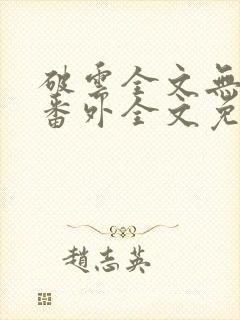 破雲全文無
番外全文免
趙志英